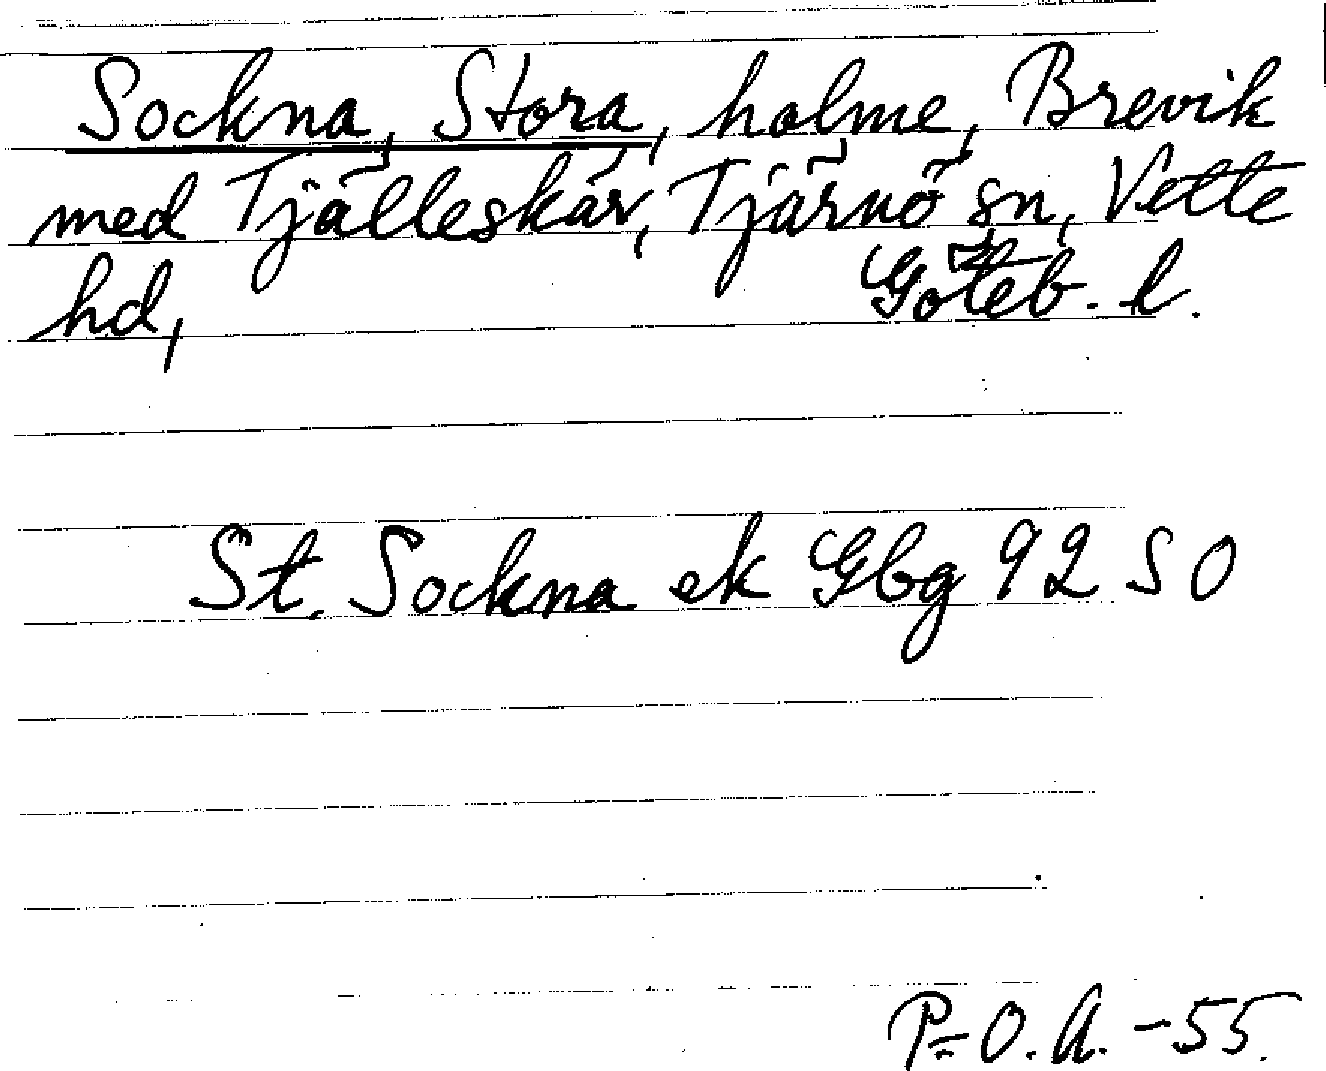 Sockna, Stora, holme, Brevik
med Tjälleskär, Tjärnö sn, Vette
hd, Göteb. l.
St. Sockna ek Gbg 92 SO
P=O.A. -55.